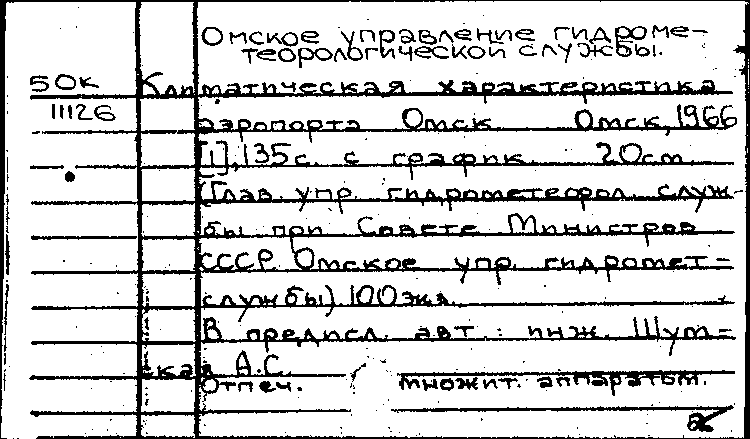 Омское управление гидроме-
теорологической службы.
50к Климатическая характеристика
11126 аэропорта Омск Омск, 1966
[1], 135 с. с график 20 см.
(Глав. упр. гидрометеорол. служ-
бы при Совете Министров
СССР. Омское упр. гидромет-
службы). 100 экз.
В предисл. авт.: инж. Шут-
ская А.С.
Отпеч. множит. аппаратом.